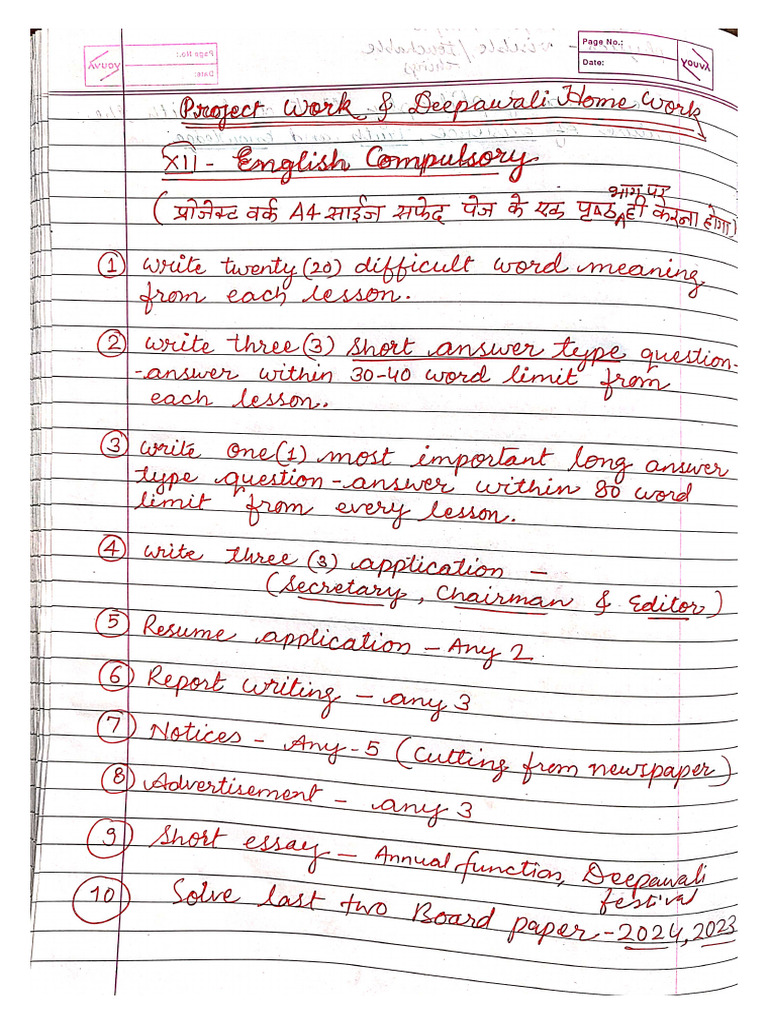 Page No.:
Date:
YOUVA
Project Work & Deepawali Home Work
XII - English Compulsory
भाग पर
(प्रोजेक्ट वर्क A4 साईज सफेद पेज के एक पृष्ठ ही करना होगा)
① write twenty (20) difficult word meaning
from each lesson.
② write three (3) short answer type question-
-answer within 30-40 word limit from
each lesson.
③ write one (1) most important long answer
type question-answer within 80 word
limit from every lesson.
④ write three (3) application -
(Secretary, Chairman & Editor)
⑤ Resume application - Any 2
⑥ Report writing - any 3
⑦ Notices - Any-5 (Cutting from newspaper)
⑧ Advertisement - any 3
⑨ Short essay - Annual function, Deepawali
festival
⑩ Solve last two Board paper - 2024, 2023